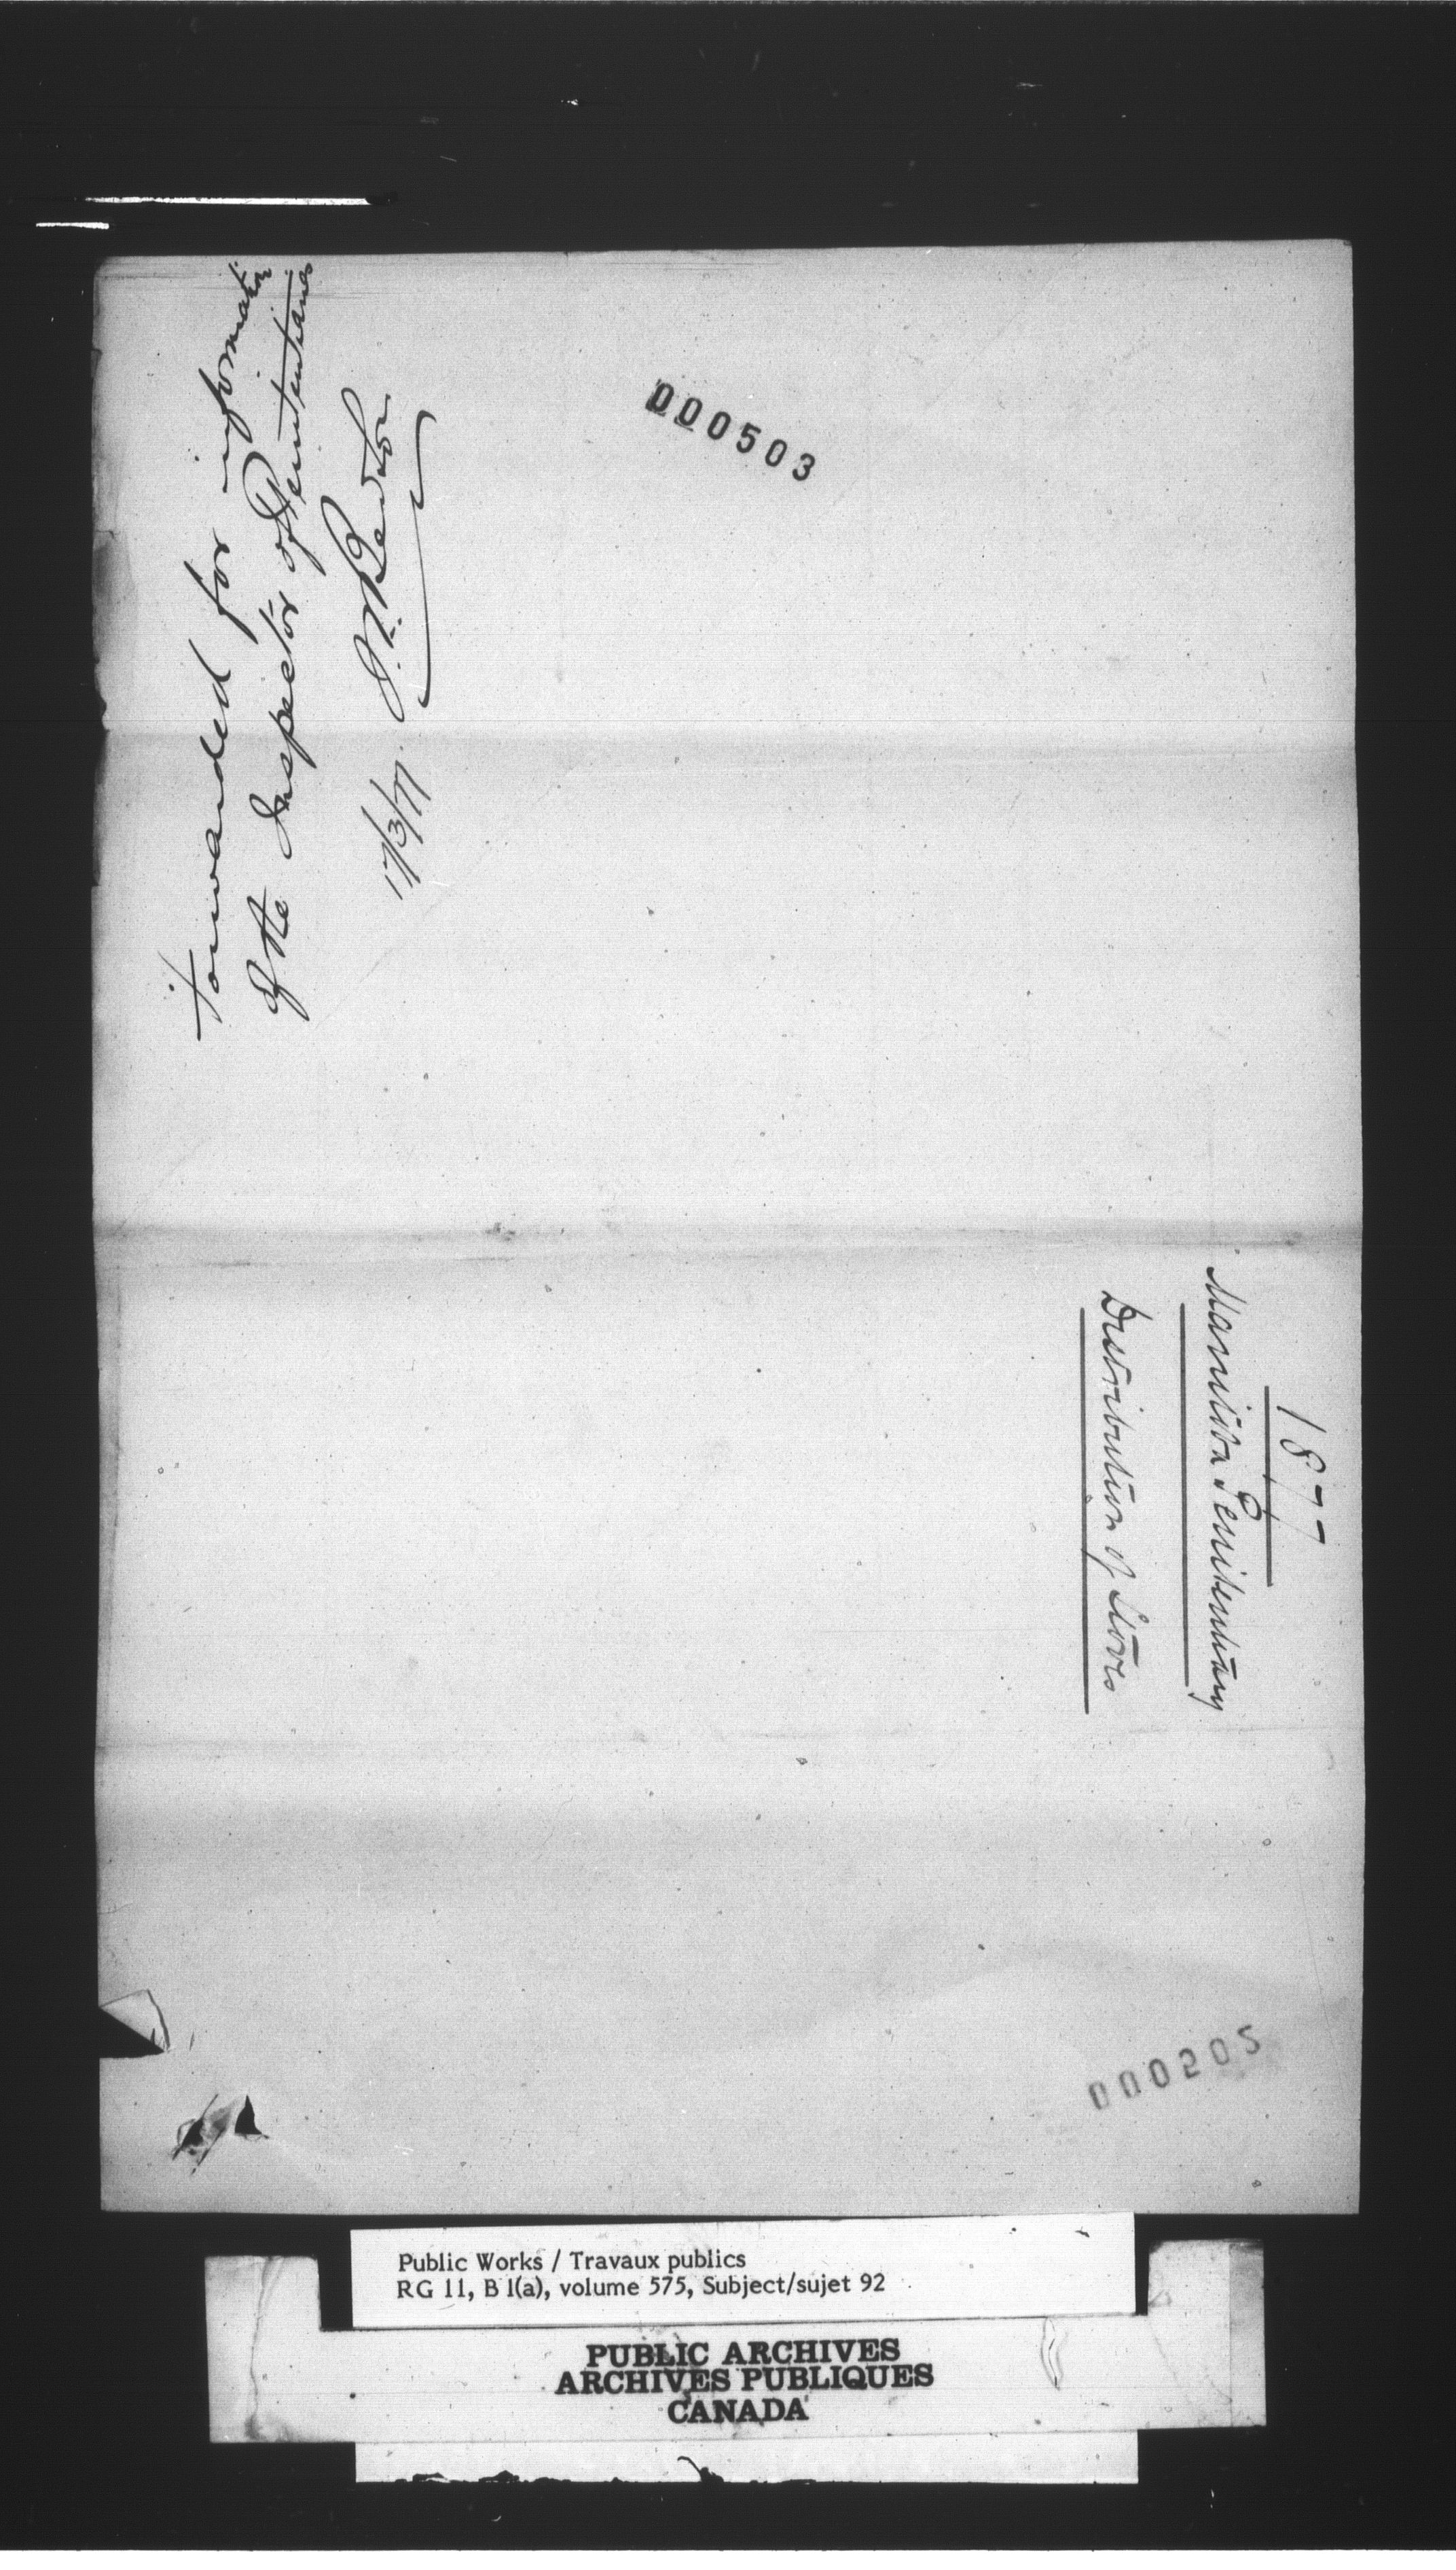 Forwarded for information
of the Inspector of Penitentiaries
S. L. Bedson
17/3/77
000503
1877
Manitoba Penitentiary
Distribution of Stoves
000205
Public Works / Travaux publics
RG 11, B 1(a), volume 575, Subject/sujet 92
PUBLIC ARCHIVES
ARCHIVES PUBLIQUES
CANADA